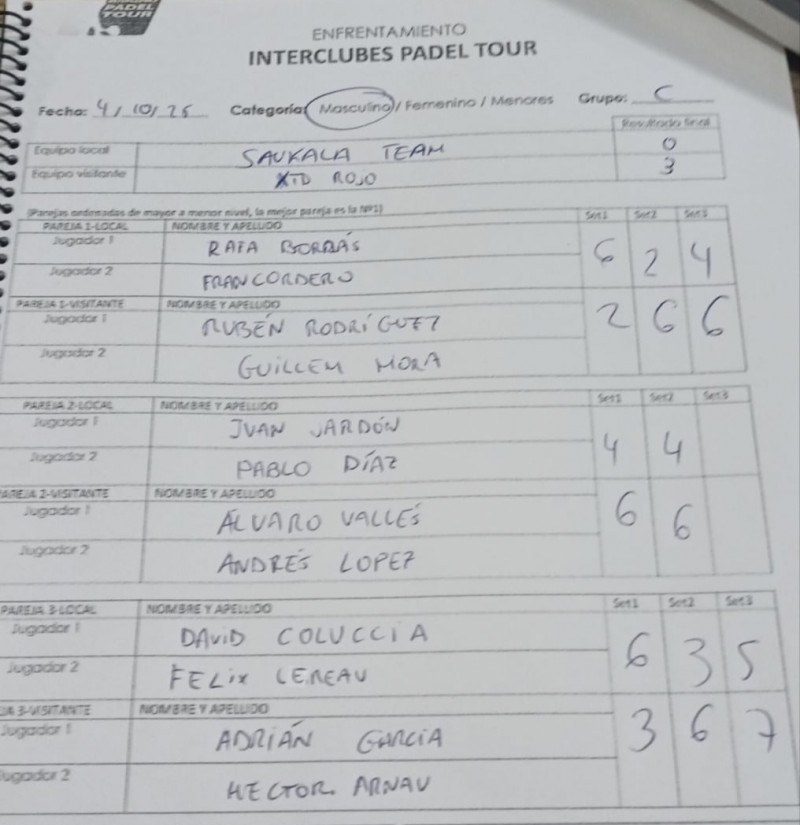 PADEL
TOUR
ENFRENTAMIENTO
INTERCLUBES PADEL TOUR
Fecha: 4/10/25 Categoría: Masculino / Femenino / Menores Grupo: C
Resultado final
Equipo local SAUKALA TEAM 0
Equipo visitante XTD ROJO 3
(Parejas ordenadas de mayor a menor nivel, la mejor pareja es la Nº1)
PAREJA 1-LOCAL NOMBRE Y APELLIDO Set1 Set2 Set3
Jugador 1 RAFA BORRÁS
6 2 4
Jugador 2 FRAN CORDERO
PAREJA 1-VISITANTE NOMBRE Y APELLIDO
Jugador 1 RUBÉN RODRÍGUEZ
2 6 6
Jugador 2 GUILLEM MORA
PAREJA 2-LOCAL NOMBRE Y APELLIDO Set1 Set2 Set3
Jugador 1 JUAN JARDÓN
4 4
Jugador 2 PABLO DÍAZ
PAREJA 2-VISITANTE NOMBRE Y APELLIDO
Jugador 1 ÁLVARO VALLÉS
6 6
Jugador 2 ANDRÉS LOPEZ
PAREJA 3-LOCAL NOMBRE Y APELLIDO Set1 Set2 Set3
Jugador 1 DAVID COLUCCIA
6 3 5
Jugador 2 FELIX CEREAU
JA 3-VISITANTE NOMBRE Y APELLIDO
Jugador 1 ADRIÁN GARCÍA
3 6 7
Jugador 2 HECTOR ARNAU